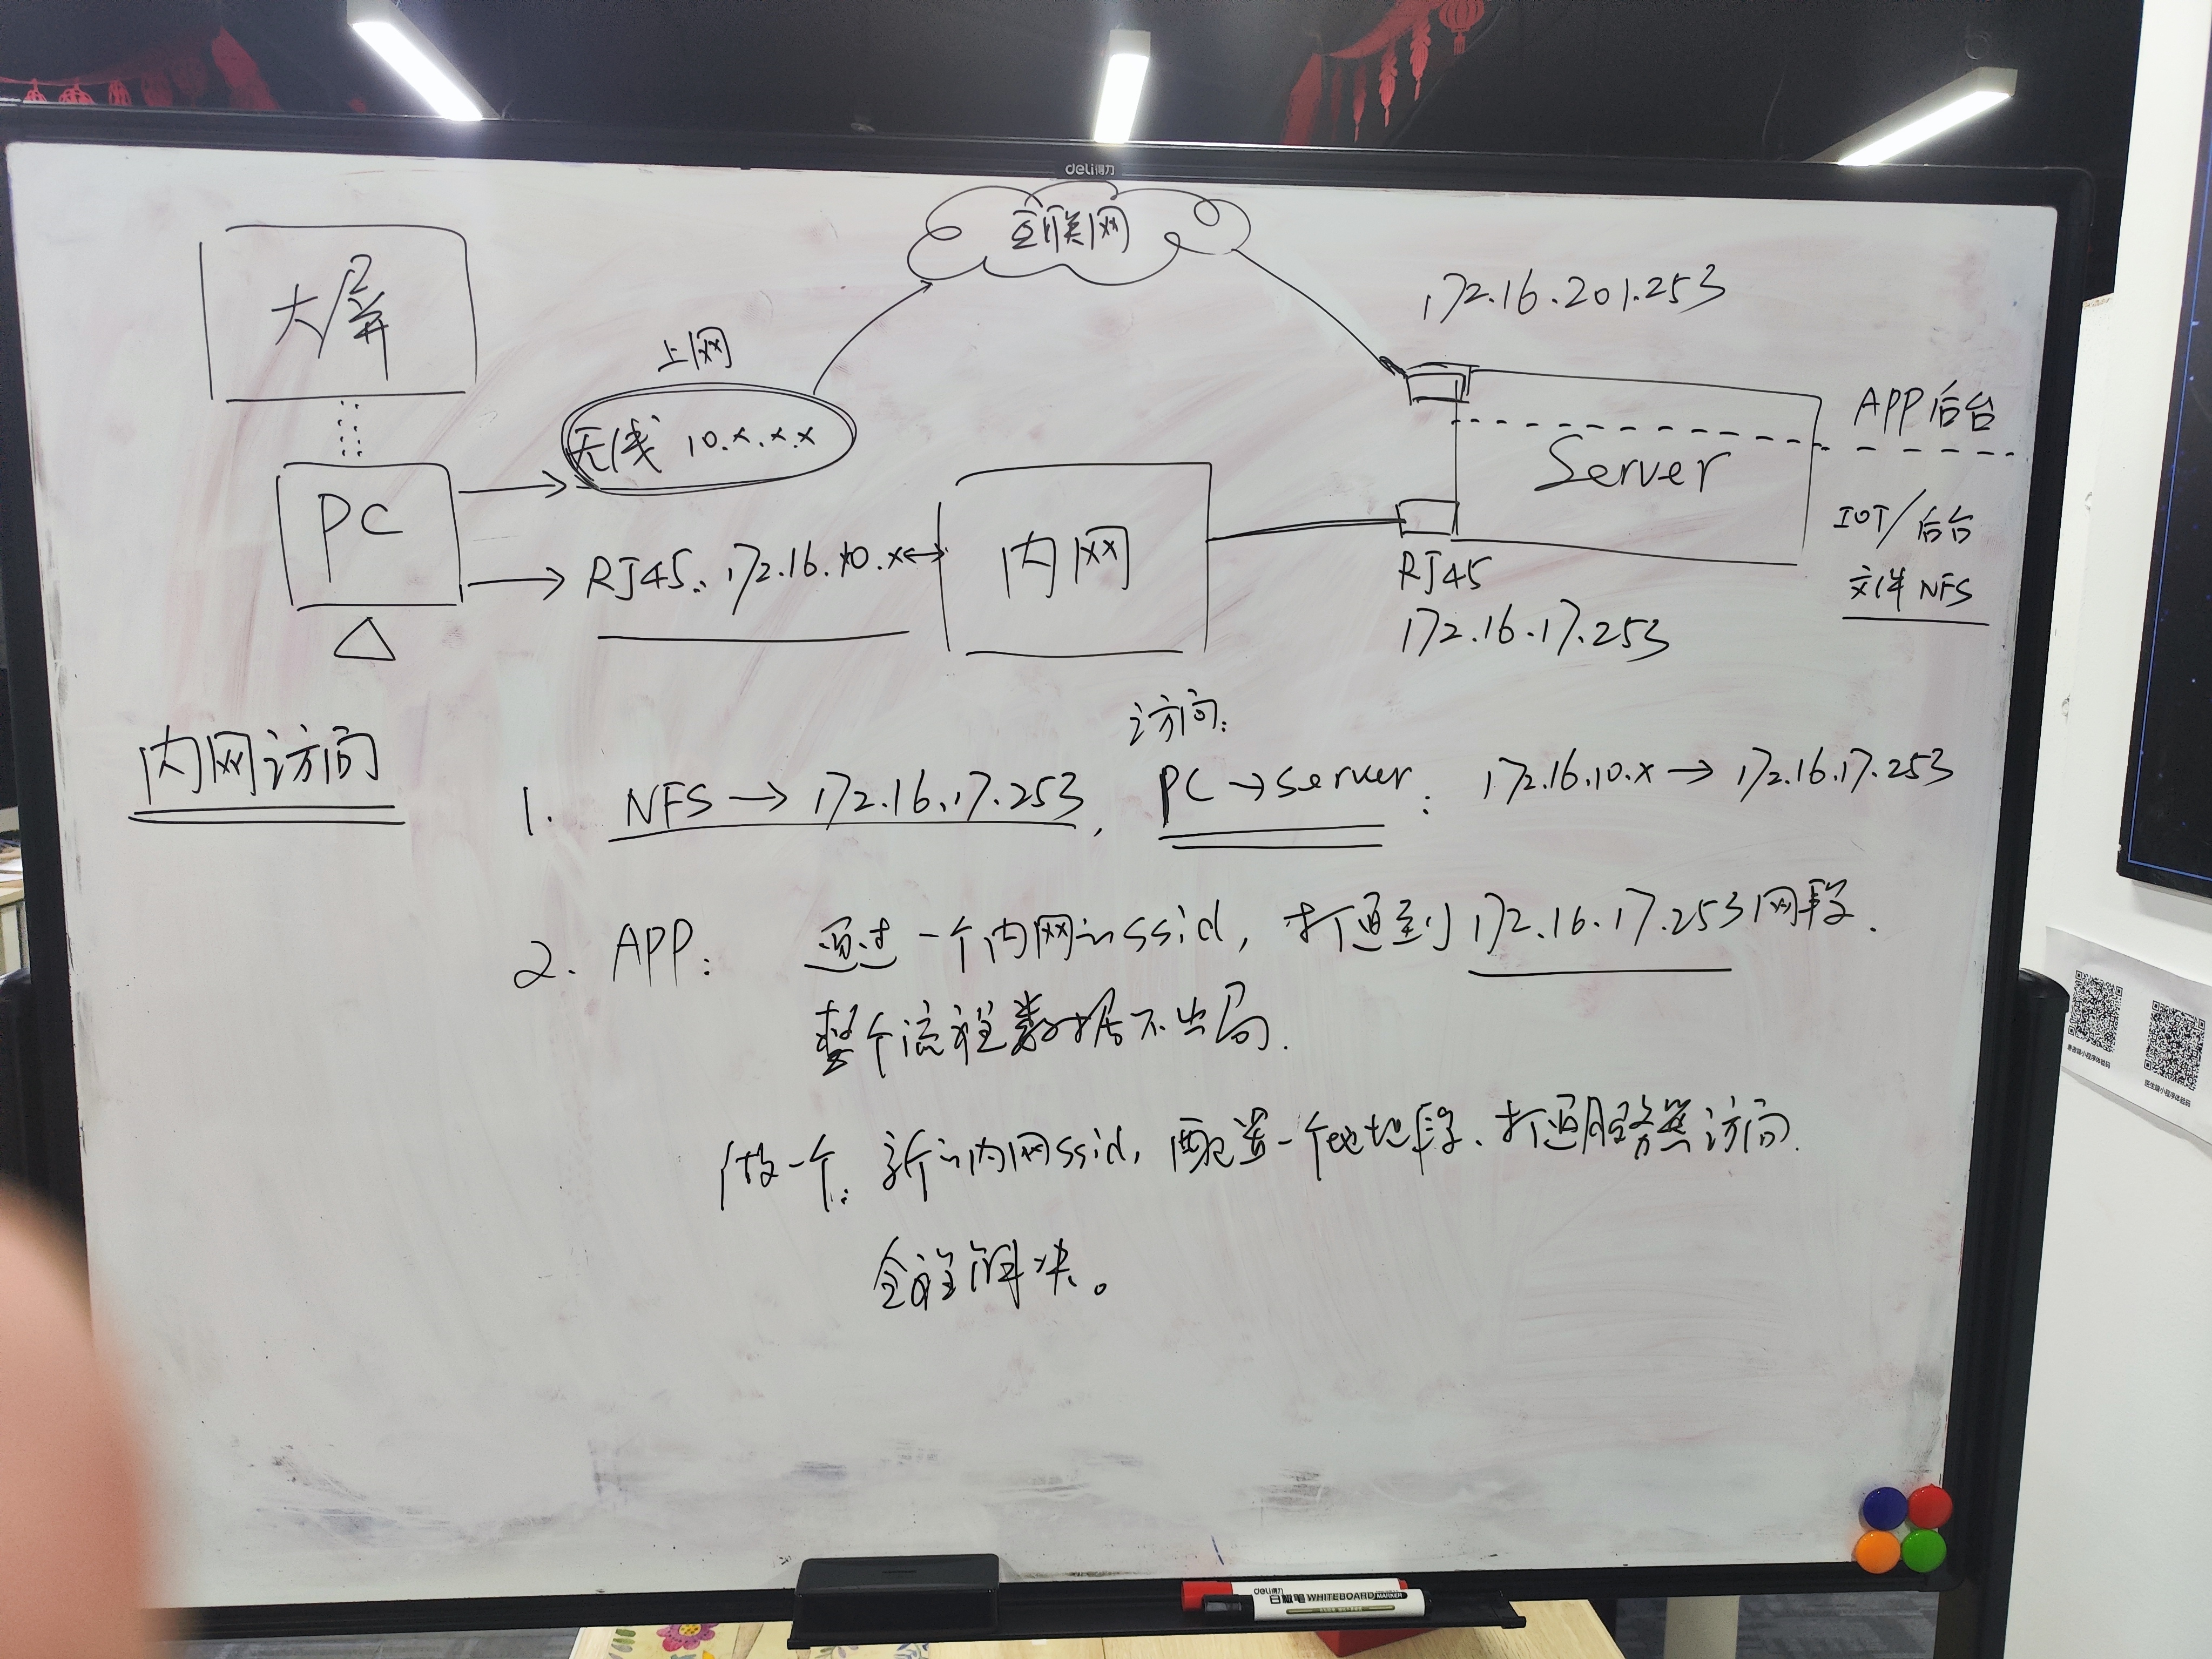 deli得力
互联网
172.16.201.253
大屏
上网
无线 10.x.x.x
APP后台
Server
PC
IOT/后台
RJ45: 172.16.10.x
内网
RJ45
文件 NFS
172.16.17.253
访问:
内网访问
1. NFS → 172.16.17.253, PC → Server: 172.16.10.x → 172.16.17.253
2. APP: 通过一个内网的ssid, 打通到172.16.17.253网段.
整个流程数据不出局.
做一个: 新的内网ssid, 配置一个地址段、打通服务器访问.
全部解决。
医生端小程序体验码
deli得力
白板笔 WHITEBOARD MARKER